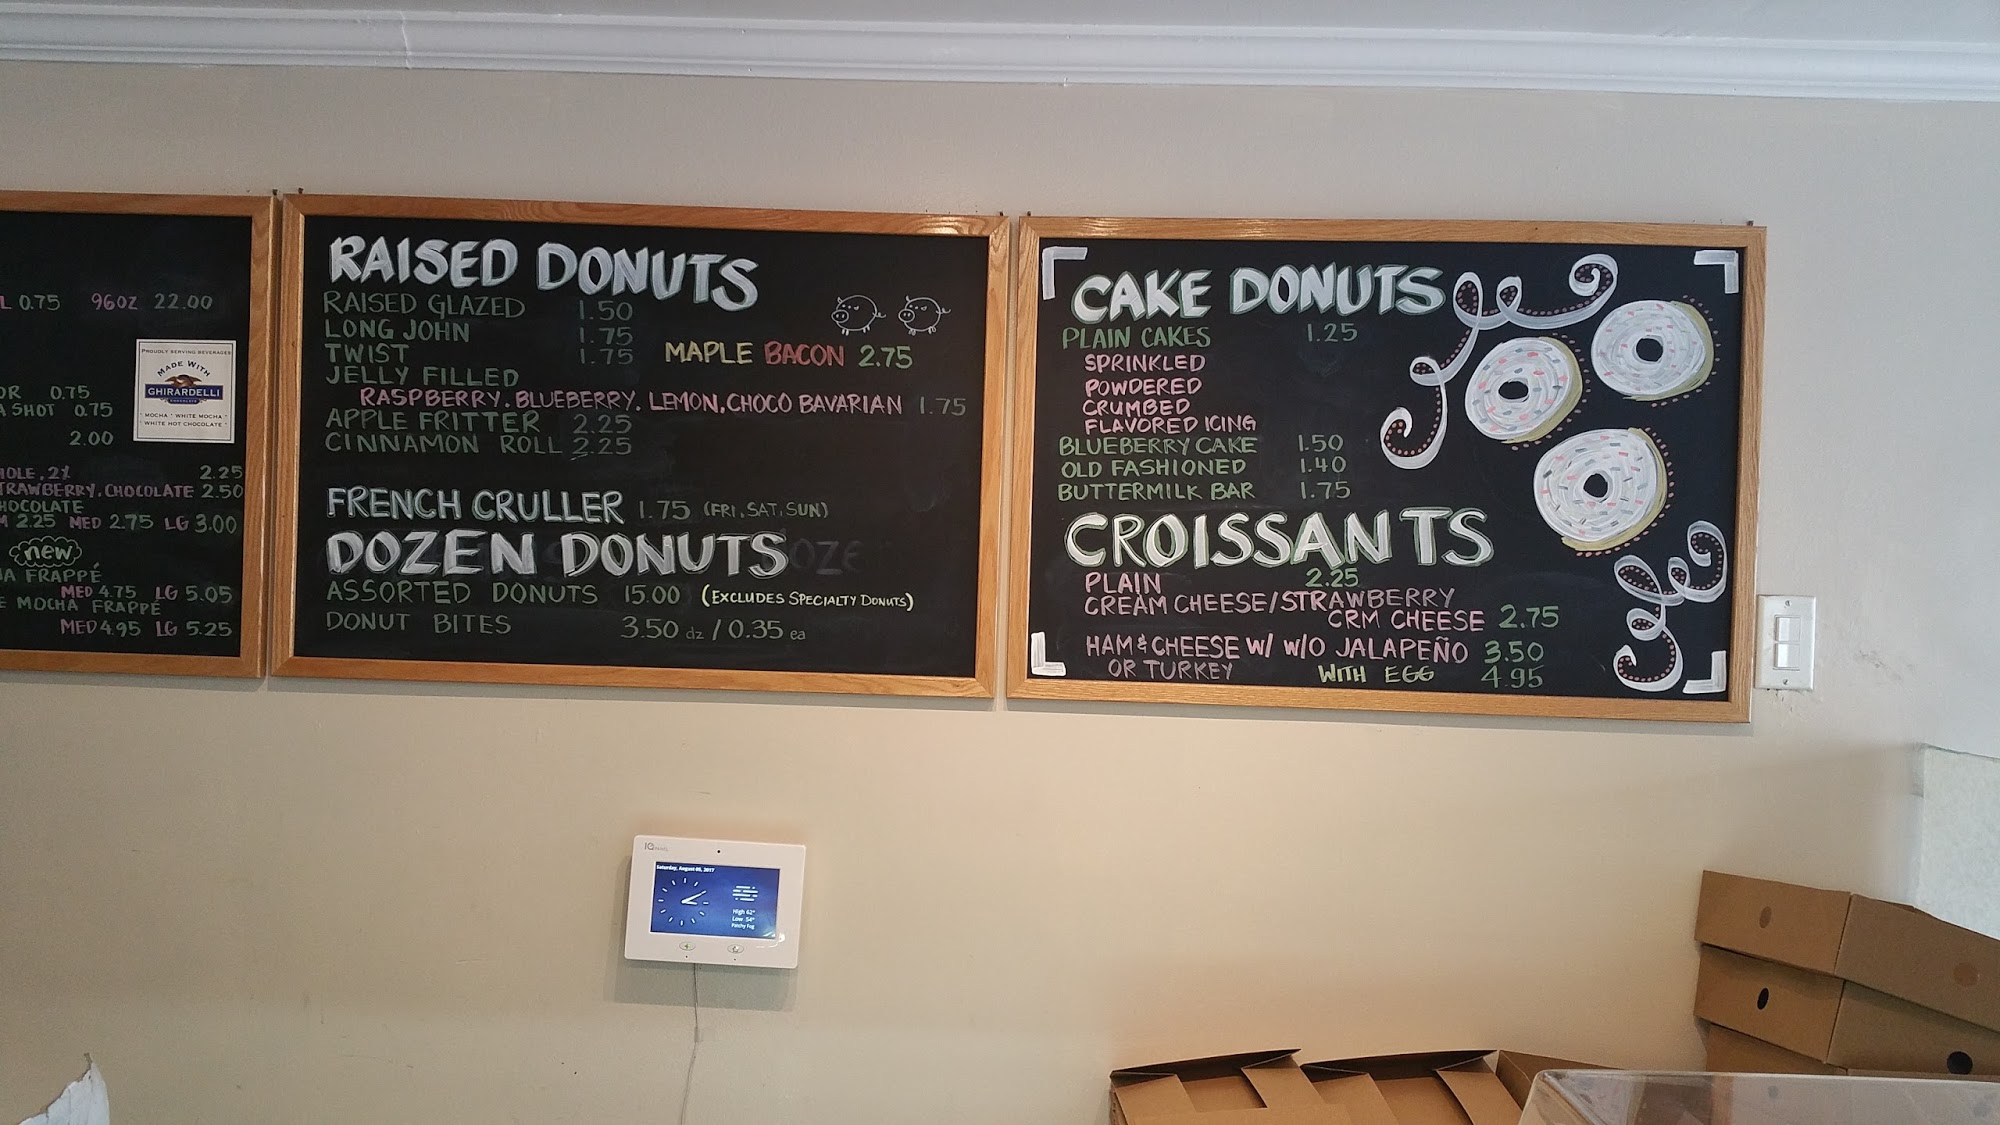 L 0.75 96OZ 22.00
PROUDLY SERVING BEVERAGES
MADE WITH
GHIRARDELLI
CHOCOLATE
MOCHA * WHITE MOCHA
WHITE HOT CHOCOLATE
OR 0.75
A SHOT 0.75
2.00
OLE, 2% 2.25
TRAWBERRY, CHOCOLATE 2.50
HOCOLATE
M 2.25 MED 2.75 LG 3.00
new
A FRAPPÉ
MED 4.75 LG 5.05
E MOCHA FRAPPÉ
MED 4.95 LG 5.25
RAISED DONUTS
RAISED GLAZED 1.50
LONG JOHN 1.75
TWIST 1.75
MAPLE BACON 2.75
JELLY FILLED
RASPBERRY. BLUEBERRY. LEMON, CHOCO BAVARIAN 1.75
APPLE FRITTER 2.25
CINNAMON ROLL 2.25
FRENCH CRULLER 1.75 (FRI, SAT, SUN)
DOZEN DONUTS
ASSORTED DONUTS 15.00 (EXCLUDES SPECIALTY DONUTS)
DONUT BITES 3.50 dz / 0.35 ea
CAKE DONUTS
PLAIN CAKES 1.25
SPRINKLED
POWDERED
CRUMBED
FLAVORED ICING
BLUEBERRY CAKE 1.50
OLD FASHIONED 1.40
BUTTERMILK BAR 1.75
CROISSANTS
PLAIN 2.25
CREAM CHEESE/STRAWBERRY
CRM CHEESE 2.75
HAM & CHEESE W/ W/O JALAPEÑO 3.50
OR TURKEY WITH EGG 4.95
IQ
Saturday, August 05, 2017
High 62°
Low 54°
Patchy Fog